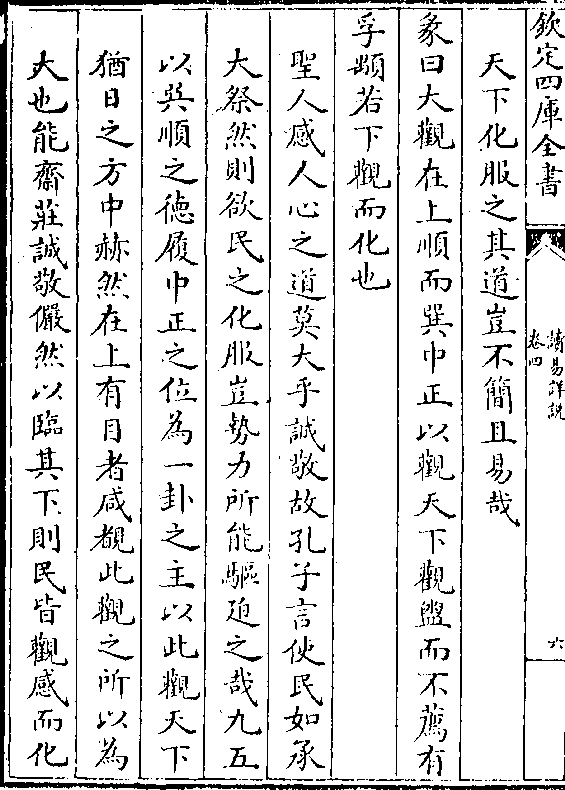 欽定四庫全書
讀易詳說
卷四
六
天下化服之其道豈不簡且易哉
彖曰大觀在上順而巽中正以觀天下觀盥而不薦有
孚顒若下觀而化也
聖人感人心之道莫大乎誠敬故孔子言使民如承
大祭然則欲民之化服豈勢力所能驅廹之哉九五
以巽順之德履中正之位為一卦之主以此觀天下
猶日之方中赫然在上有目者咸覩此觀之所以為
大也能齋莊誠敬儼然以臨其下則民皆觀感而化